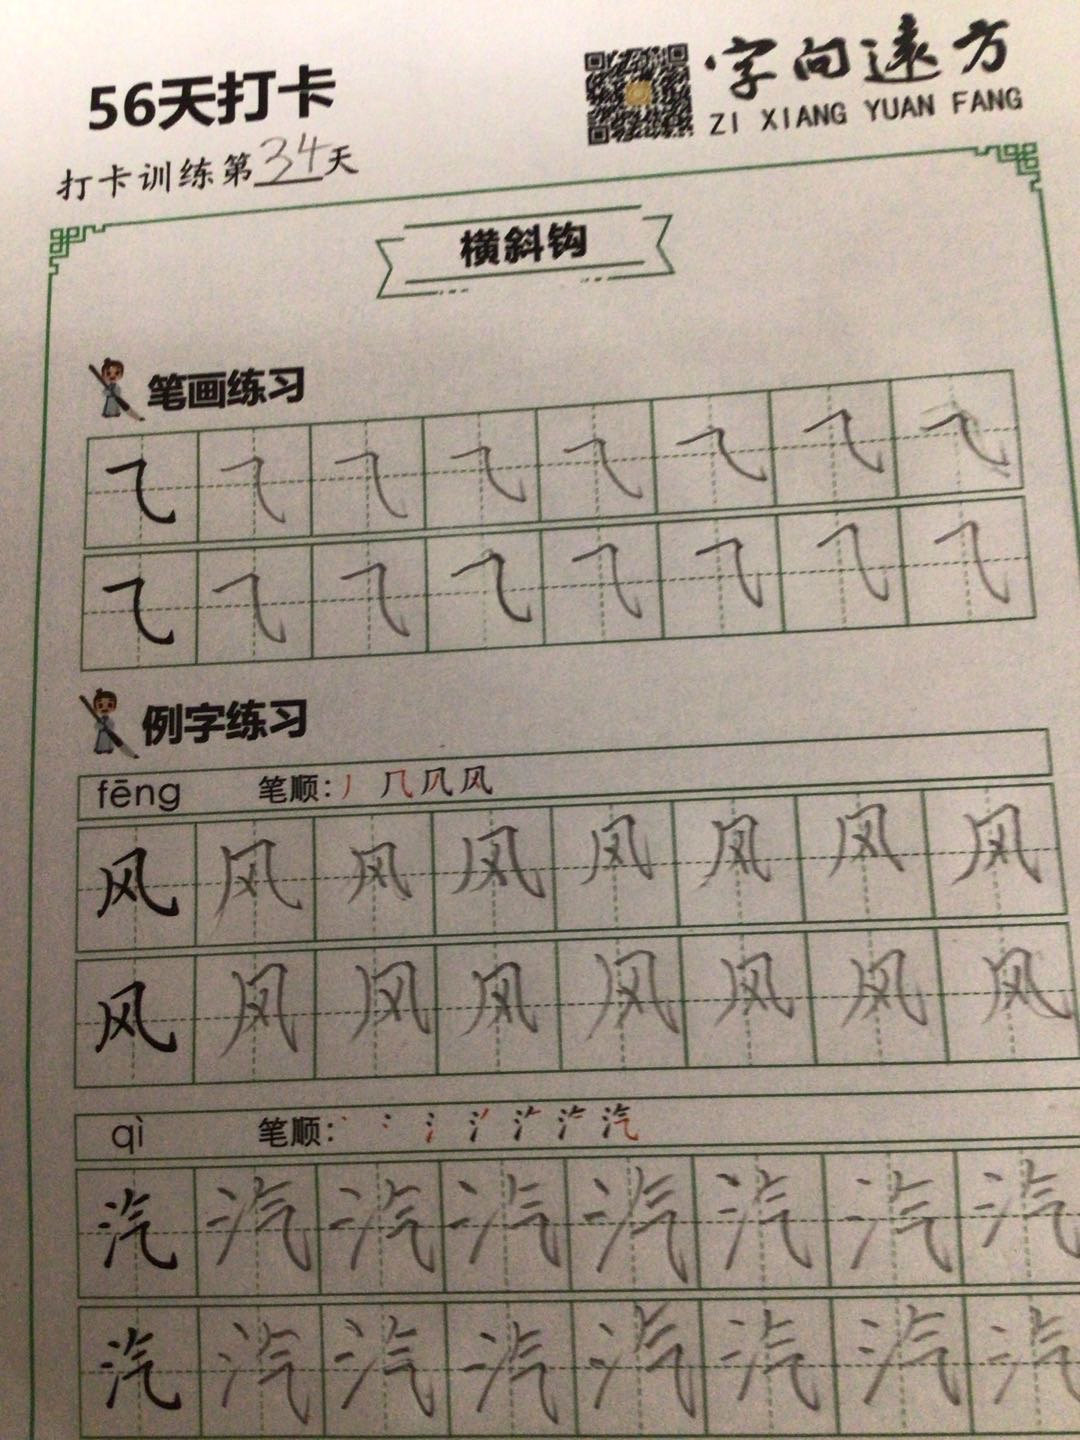 56天打卡
字向远方
ZI XIANG YUAN FANG
打卡训练第34天
横斜钩
笔画练习
⺄⺄⺄⺄⺄⺄⺄⺄
⺄⺄⺄⺄⺄⺄⺄⺄
例字练习
fēng 笔顺: 丿 几 凤 风
风风风风风风风风
风风风风风风风风
qì 笔顺: 丶 冫 氵 汽
汽汽汽汽汽汽汽汽
汽汽汽汽汽汽汽汽